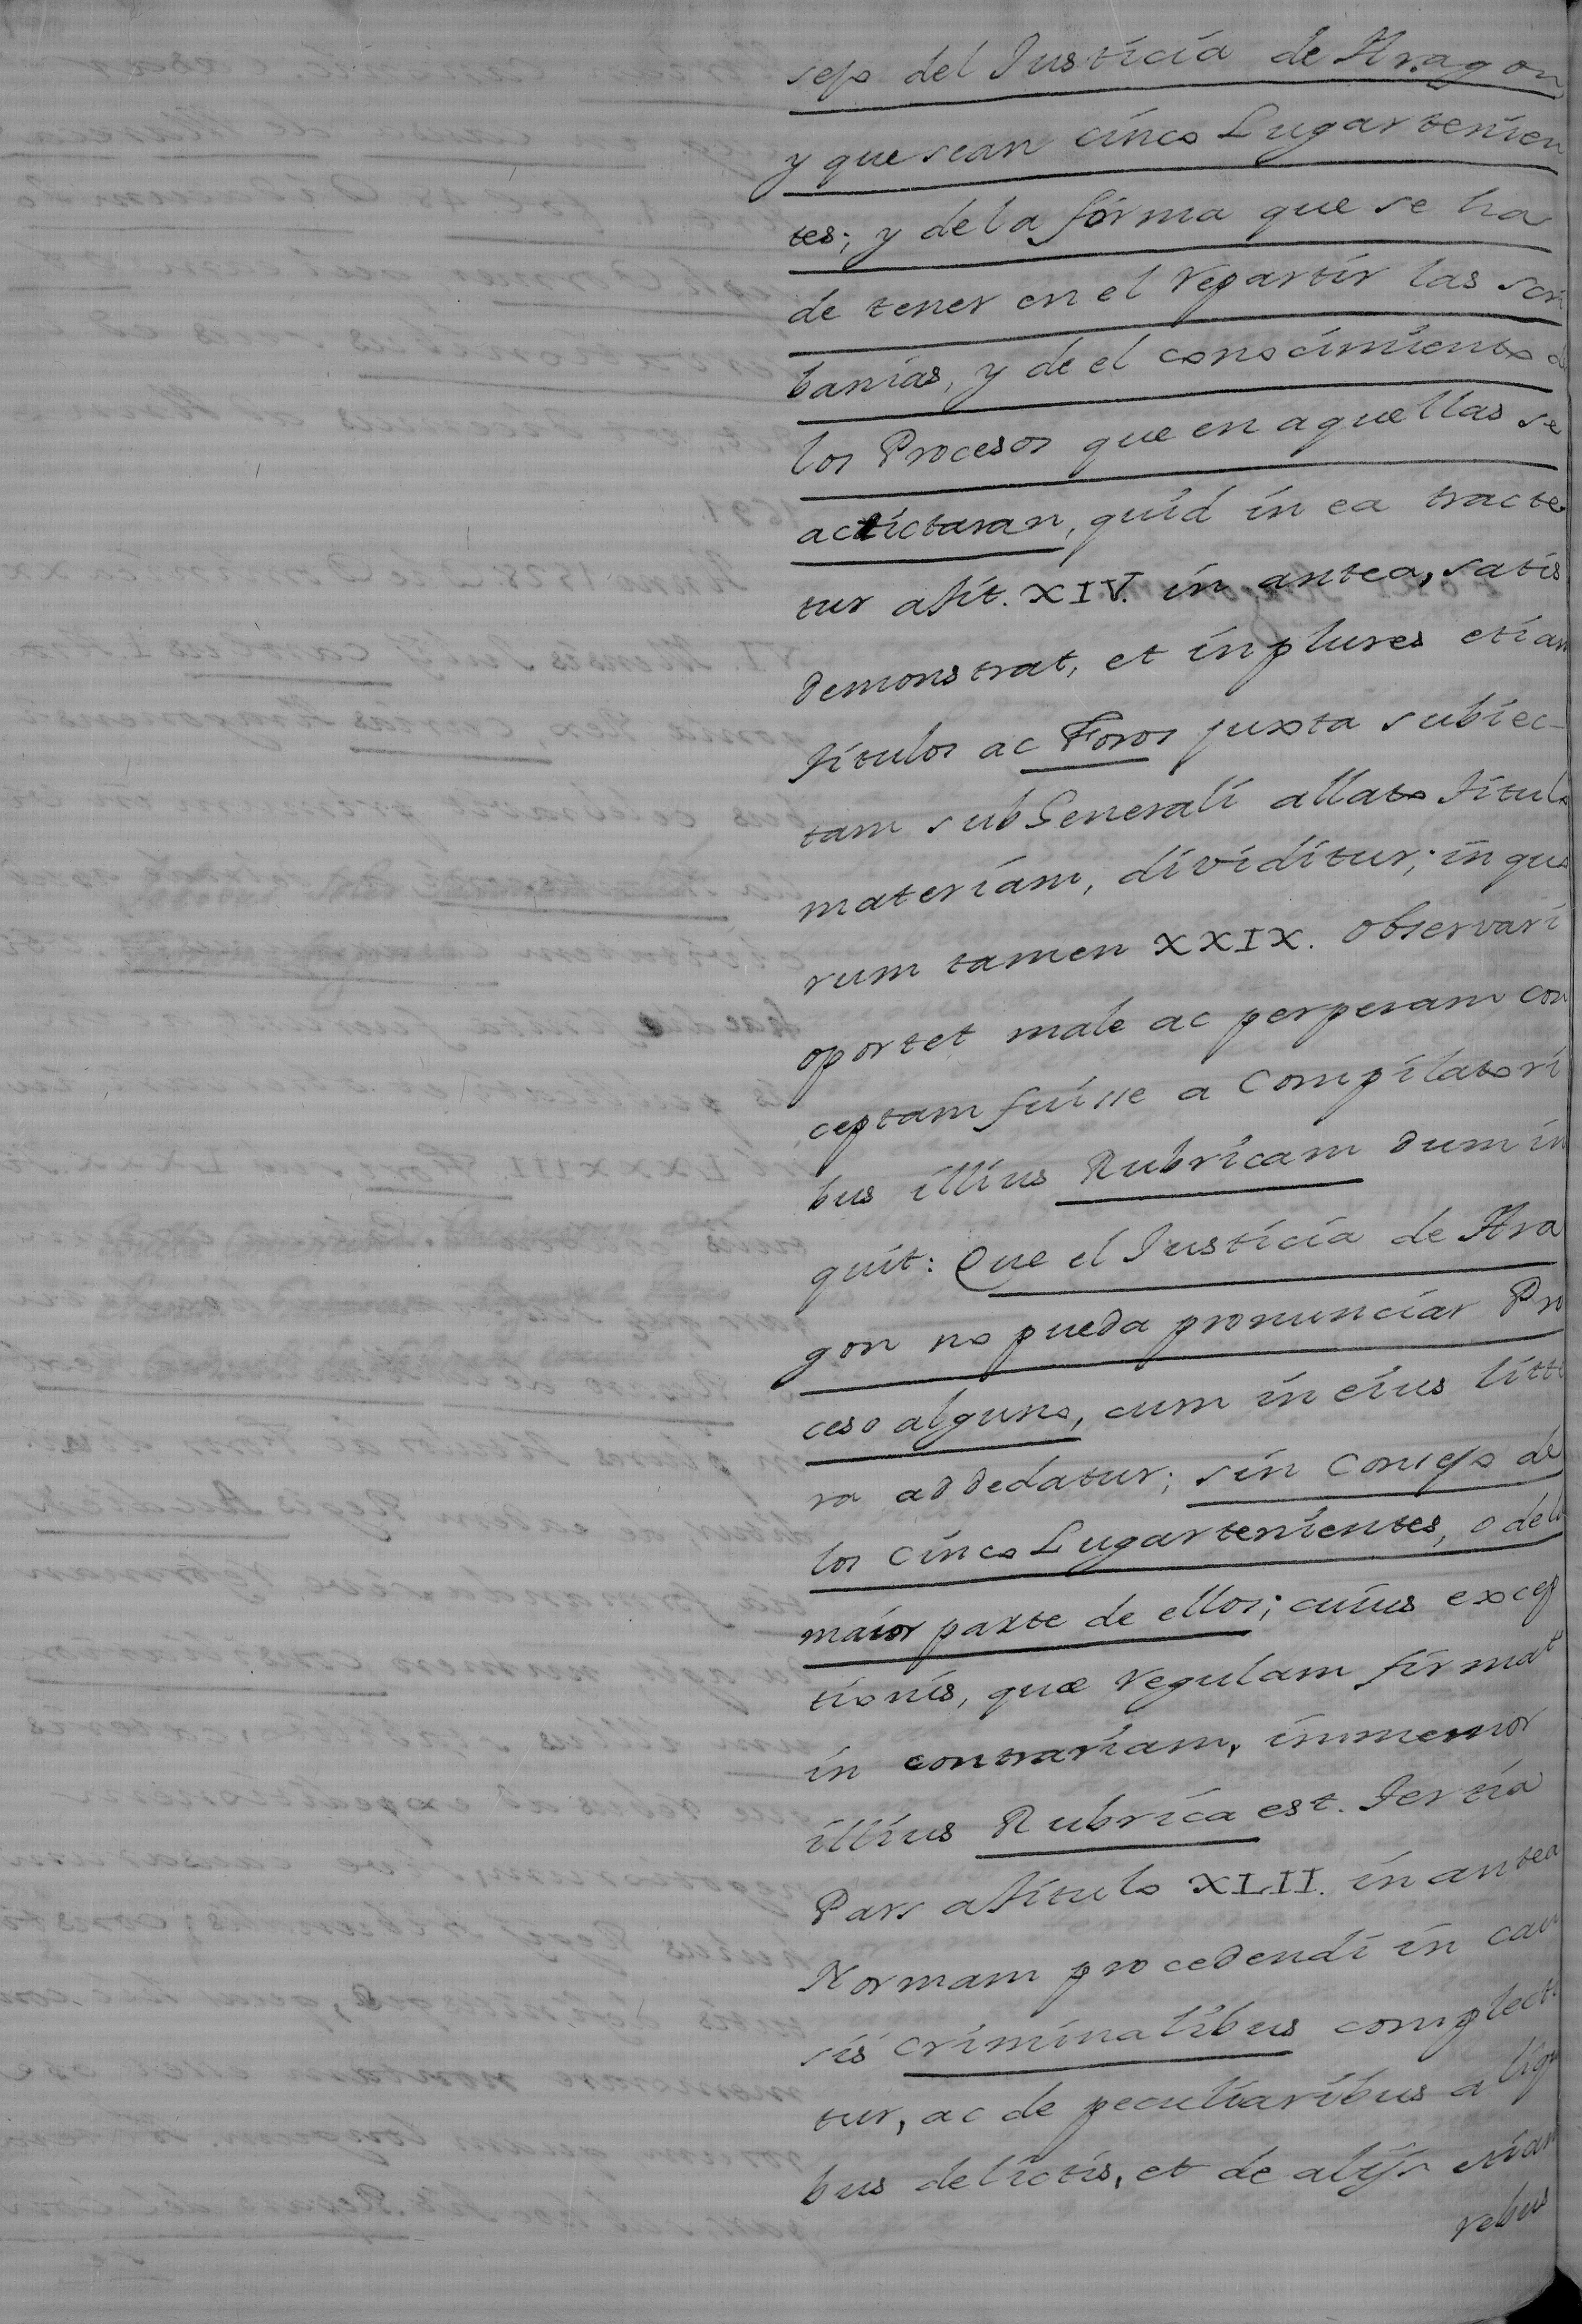 sejo del Justicia de Aragon,
y que sean cinco Lugartenien
tes; y de la forma que se ha
de tener en el repartir las scri
banias, y de el conocimiento de
los Procesos que en aquellas se
actictaran, quid in ea tracte
tur a tit. XIV. in antea, satis
demonstrat, et in plures etiam
titulos ac Foros juxta subiec-
tam sub Generali allato titulo
materiam, dividitur; in quo
rum tamen XXIX. observari
oportet male ac perperam con
ceptam fuisse a Compilatori
bus illius Rubricam dum in
quit: Que el Justicia de Ara
gon no pueda pronunciar Pro
ceso alguno, cum in eius litte
ra addedatur; sin Consejo de
los cinco Lugartenientes, o de la
maior parte de ellos; cuius excep
tionis, quæ regulam firmat
in contrariam, inmemor
illius Rubrica est. Tertia
Pars a titulo XLII. in antea
Normam procedendi in cau
sis criminalibus complecti
tur, ac de peculiaribus aliqui
bus delictis, et de alijs etiam
rebus